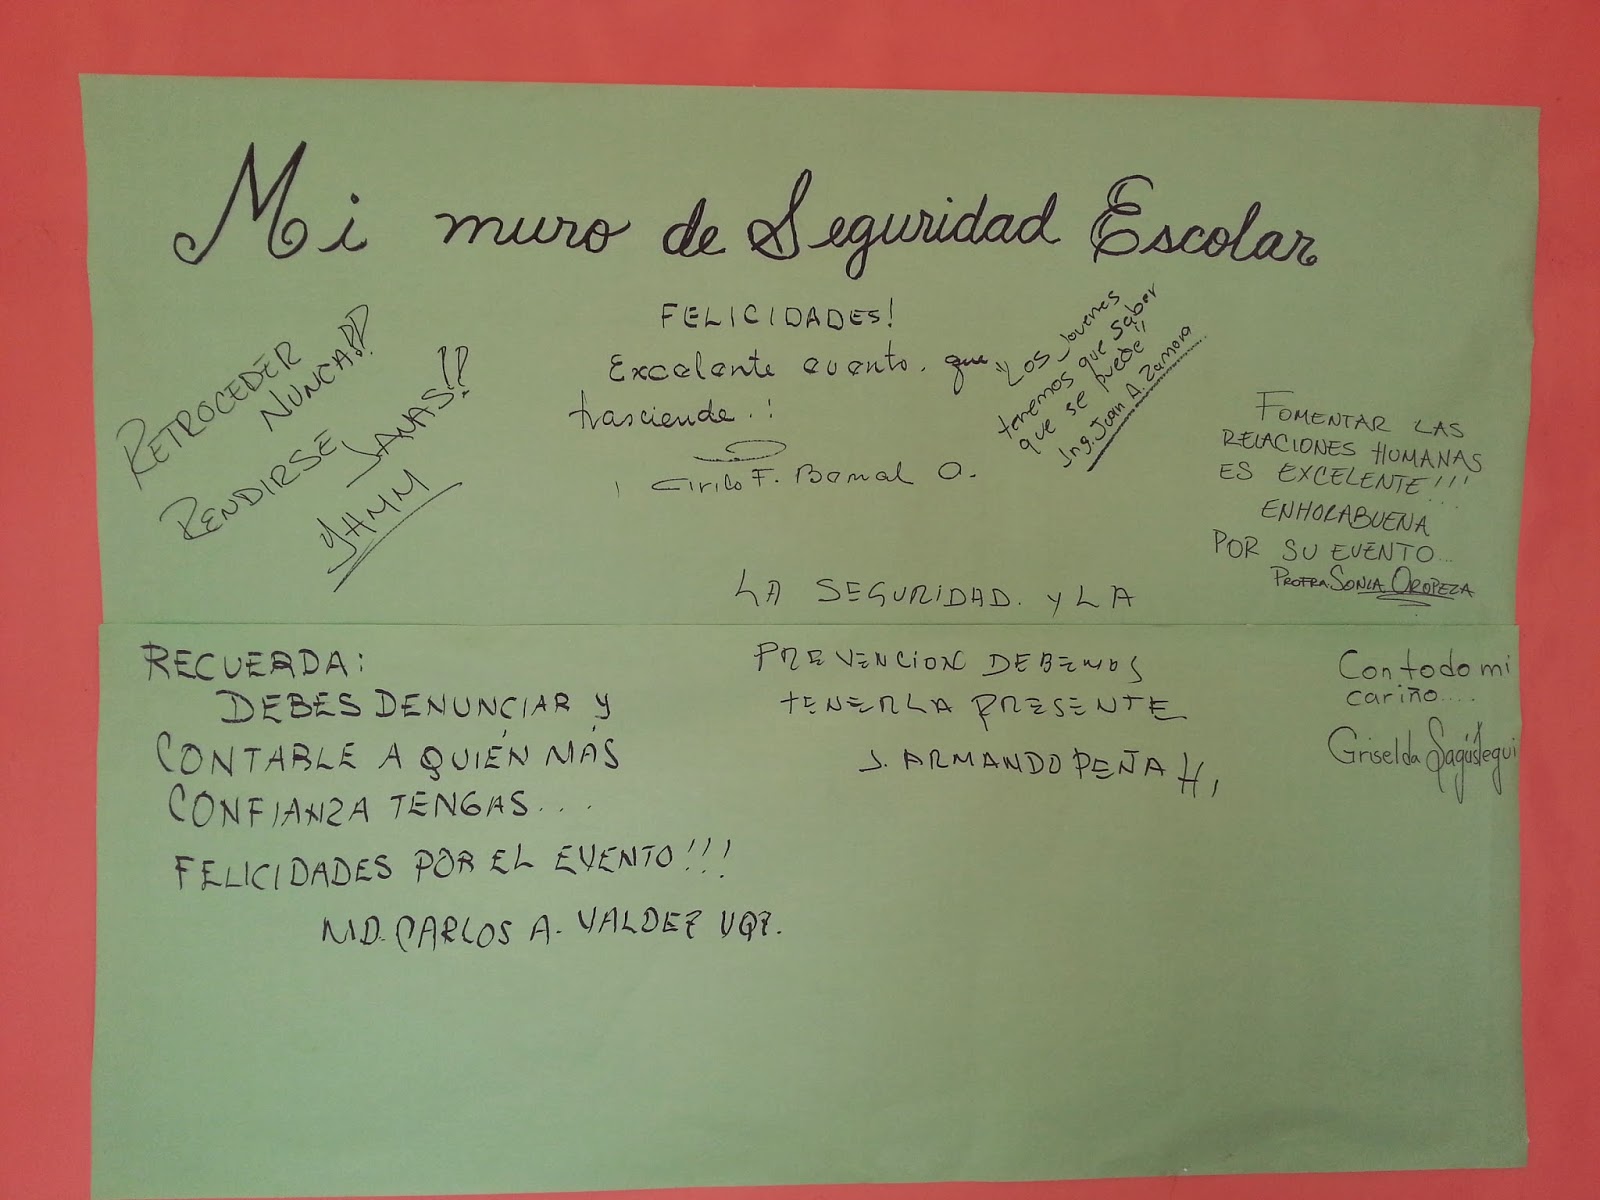 Mi muro de Seguridad Escolar
RETROCEDER
NUNCA!!
RENDIRSE
JAMAS!!
YAMM
FELICIDADES!
Excelente evento. que
trasciende.!
Cirilo F. O.
"Los Jovenes
tenemos que Saber
que se puede"
Ing. Juan A. Zamora
FOMENTAR LAS
RELACIONES HUMANAS
ES EXCELENTE!!!
ENHORABUENA
POR SU EVENTO...
PROFRA. SONIA OROPEZA
RECUERDA:
DEBES DENUNCIAR Y
CONTARLE A QUIÉN MÁS
CONFIANZA TENGAS...
FELICIDADES POR EL EVENTO!!!
MD. CARLOS A. VALDEZ VQZ.
LA SEGURIDAD. Y LA
PREVENCION DEBEMOS
TENERLA PRESENTE
J. ARMANDO PEÑA H,
Con todo mi
cariño....
Griselda Sagústegui